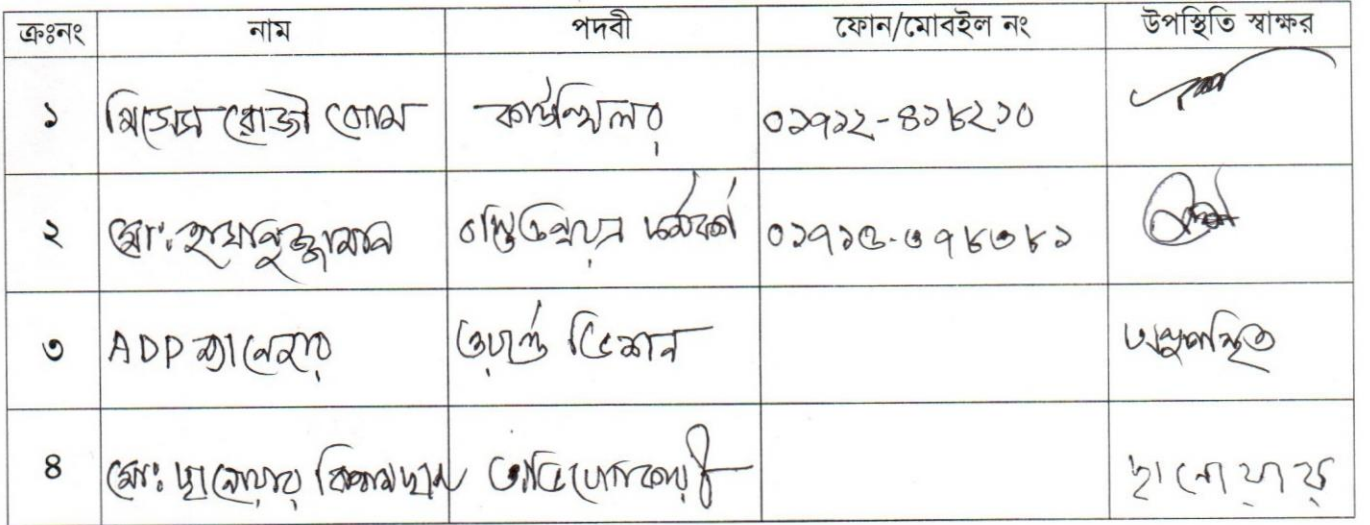 ক্রঃনং নাম পদবী ফোন/মোবইল নং উপস্থিতি স্বাক্ষর
১ মিসেস রোজী কাউন্সিলর ০১৭১২-৪১৮২১০
২ মোঃ হাসানুজ্জামান কর্মকর্তা ০১৭১৩-৩৭৮৩৮১
৩ ADP ম্যানেজার ওয়ার্ল্ড ভিশন অনুপস্থিত
৪ মোঃ ছানোয়ার অভিযোগকারী ছানোয়ার